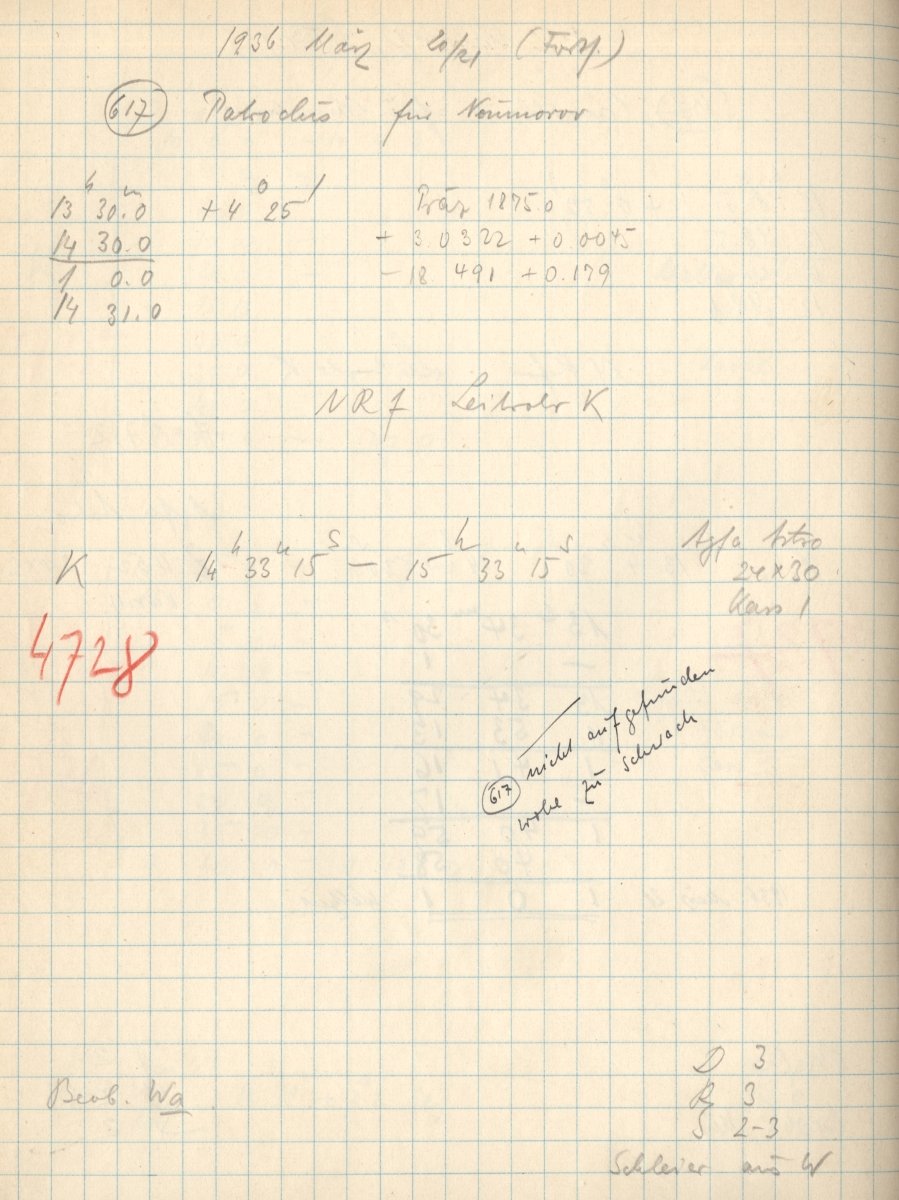 1936 März 20/21 (Forts.)
617 Patroclus für Neumoror
13h 30.m0 +4° 25' Präz 1875.0
14 30.0 + 3.0322 + 0.0045
1 0.0 - 18.491 + 0.179
14 31.0
NRf Leitrohr K
K 14h 33m 15s — 15h 33m 15s Agfa Astro
24x30
Kass 1
4728
617 nicht aufgefunden
wohl zu schwach
D 3
Beob. Wa. R 3
S 2-3
Schleier aus W